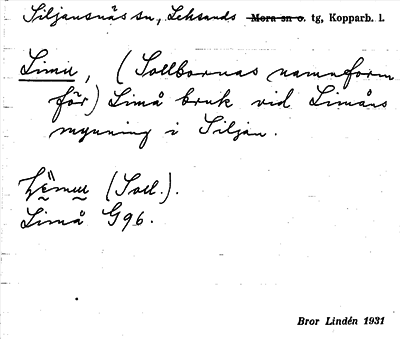 Siljansnäs sn, Leksands Mora sn o. tg, Kopparb. l.
Limu, (Sollbornas namnform
för) Limå bruk vid Limåns
mynning i Siljan.
(Soll.).
Limå G96.
Bror Lindén 1931